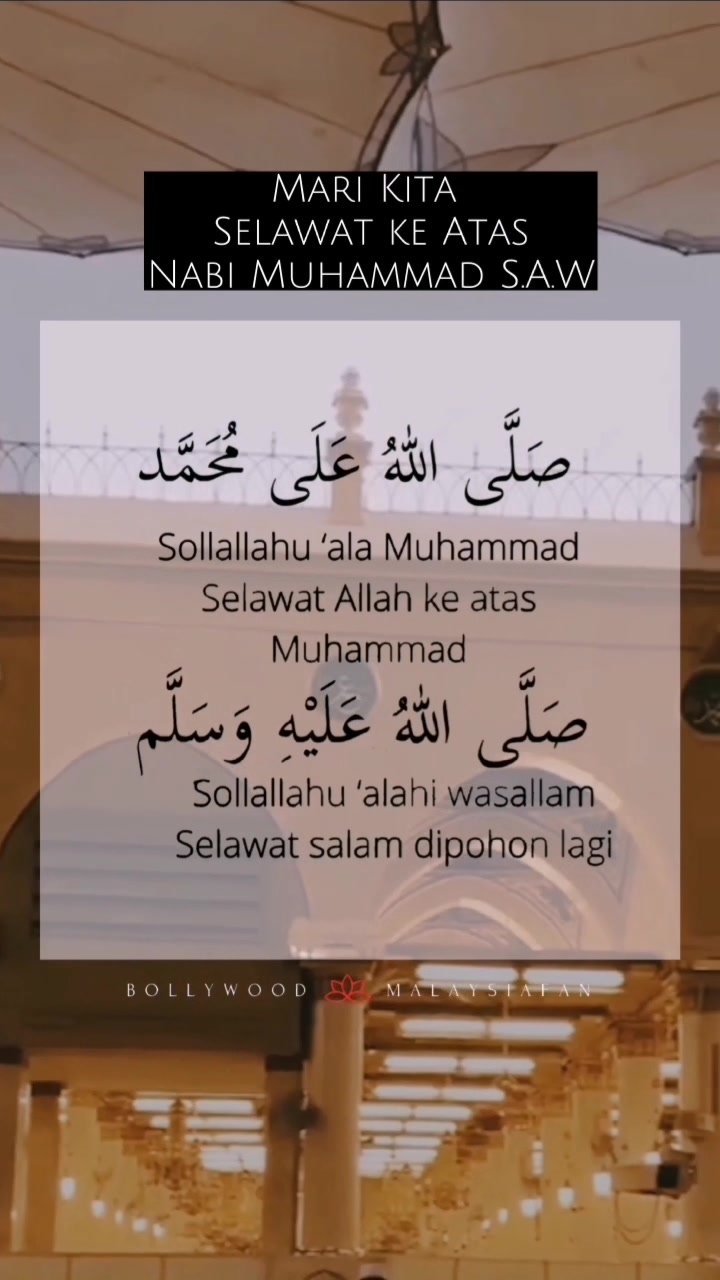 Mari Kita
Selawat ke Atas
Nabi Muhammad S.A.W
صَلَّى اللهُ عَلَى مُحَمَّد
Sollallahu ‘ala Muhammad
Selawat Allah ke atas
Muhammad
صَلَّى اللهُ عَلَيْهِ وَسَلَّم
Sollallahu ‘alahi wasallam
Selawat salam dipohon lagi
BOLLYWOOD MALAYSIAFAN